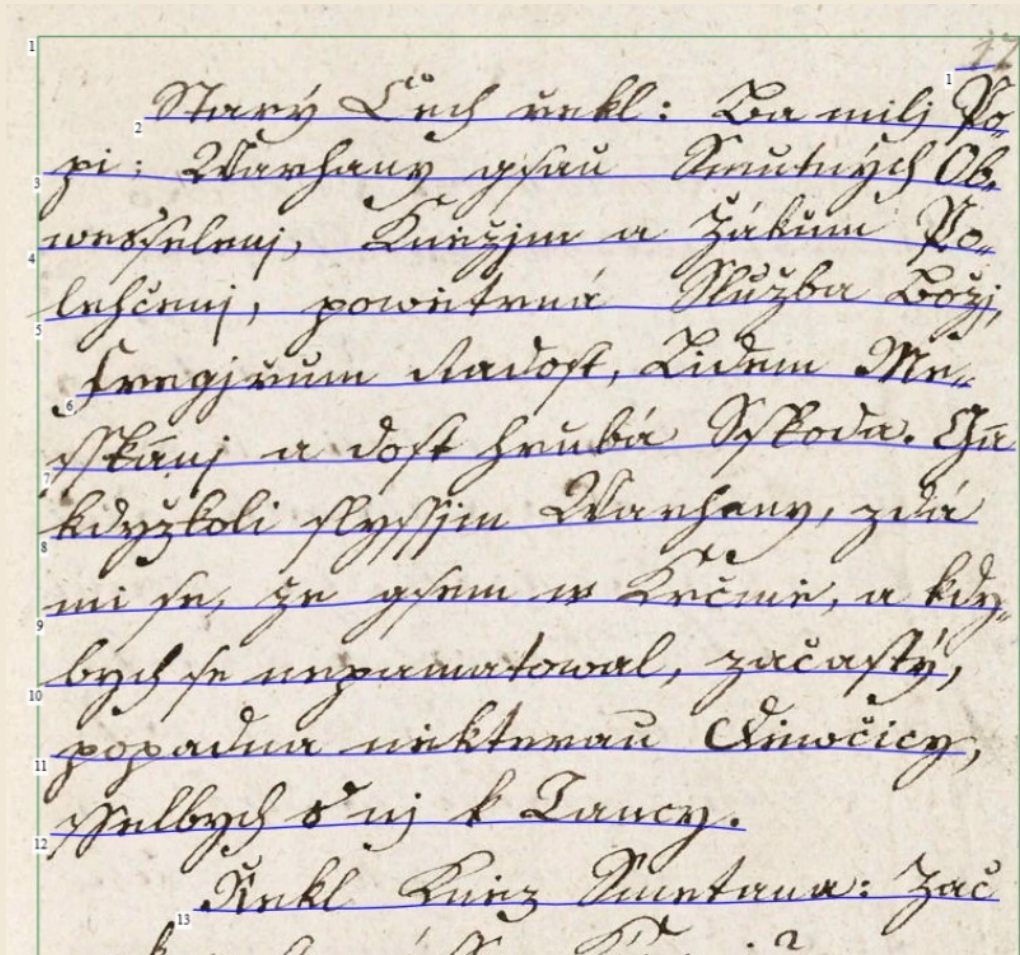 17
Starý Čech řekl: Ba milj Po-
pi: Warhany gsau Smutných Ob-
wesselenj, Kněžjm a Žákum Po-
lehčenj, powětrná Služba Božj,
Fregjrum Radost, Lidem Me-
sskánj a dost hrubá Sskoda. Gá
kdyžkoli slyssjm Warhany, zdá
mi se, že gsem w Krčmě, a kdy-
bych se nepamatowal, začastý,
popadna některau Děwčicy,
sselbych s nj k Tancy.
Řekl Kněz Smetana: Zač